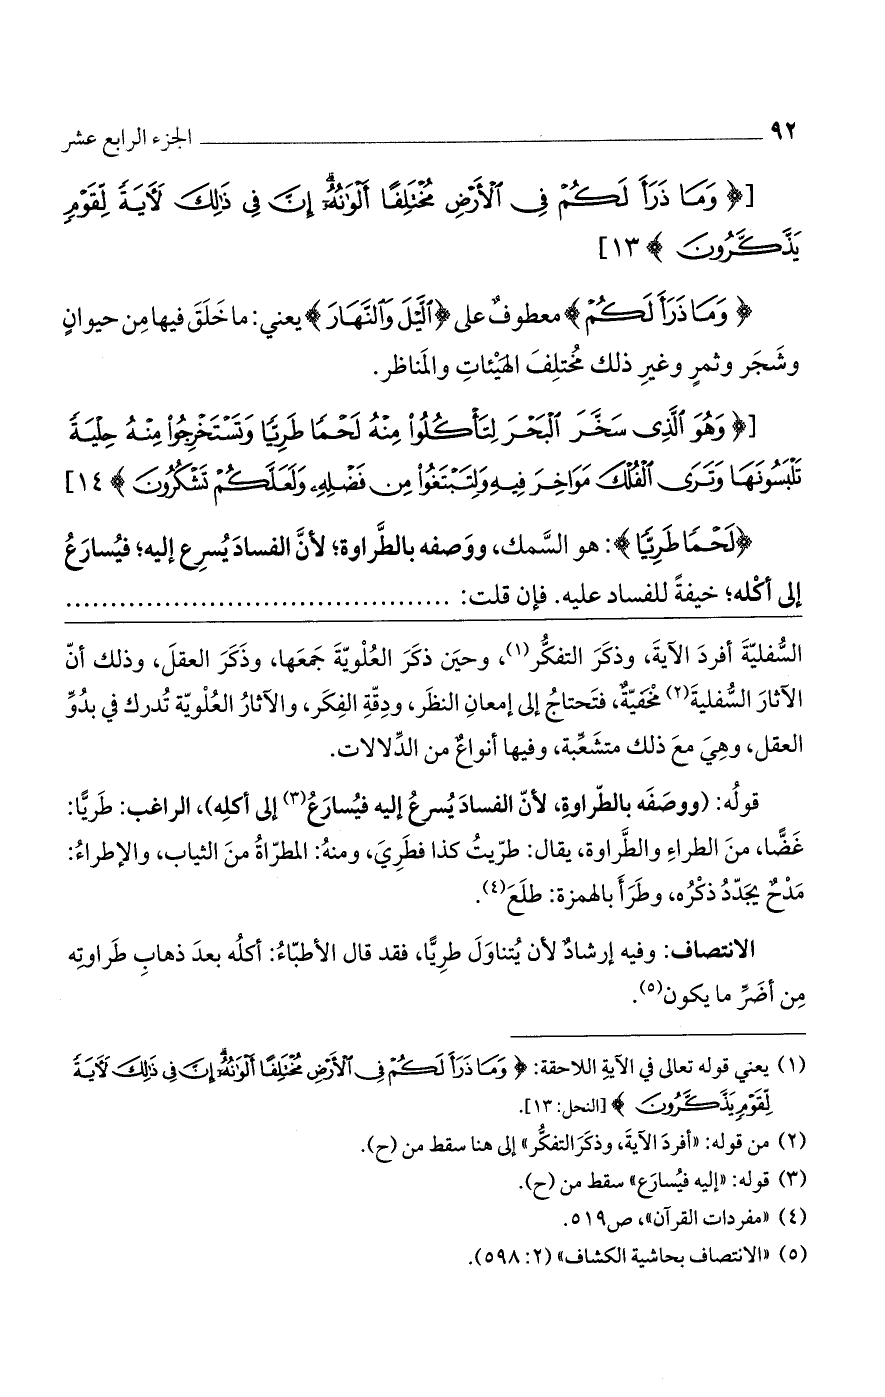 ٩٢ ـــــــــ الجزء الرابع عشر
[﴿ وَمَا ذَرَأَ لَكُمْ فِى ٱلْأَرْضِ مُخْتَلِفًا أَلْوَٰنُهُۥٓ ۗ إِنَّ فِى ذَٰلِكَ لَأَيَةً لِّقَوْمٍ
يَذَّكَّرُونَ ﴾ ١٣]
﴿ وَمَا ذَرَأَ لَكُمْ ﴾ معطوفٌ على ﴿ٱلَّيْلَ وَٱلنَّهَارَ﴾ يعني: ما خَلَقَ فيها مِن حيوانٍ
وشَجَر وثمرٍ وغيرِ ذلك مُختلِفَ الهَيْئاتِ والمَناظر.
[﴿ وَهُوَ ٱلَّذِى سَخَّرَ ٱلْبَحْرَ لِتَأْكُلُوا۟ مِنْهُ لَحْمًا طَرِيًّا وَتَسْتَخْرِجُوا۟ مِنْهُ حِلْيَةً
تَلْبَسُونَهَا وَتَرَى ٱلْفُلْكَ مَوَاخِرَ فِيهِ وَلِتَبْتَغُوا۟ مِن فَضْلِهِۦ وَلَعَلَّكُمْ تَشْكُرُونَ ﴾ ١٤]
﴿لَحْمًا طَرِيًّا﴾: هو السَّمك، ووَصفه بالطَّراوة؛ لأنَّ الفسادَ يُسرِع إليه؛ فيُسارَعُ
إلى أكْله؛ خيفةً للفساد عليه. فإن قلت: ..........................................
السُّفليّةَ أفردَ الآيةَ، وذكَرَ التفكُّر(١)، وحينَ ذكَرَ العُلْويّةَ جَمَعَها، وذَكَرَ العقلَ، وذلك أنّ
الآثارَ السُّفليةَ(٢) مَخْفيّةٌ، فتَحتاجُ إلى إمعانِ النظَر، ودِقّةِ الفِكَر، والآثارُ العُلْويّة تُدرك في بدُوِّ
العقل، وهِيَ معَ ذلك متشَعِّبة، وفيها أنواعٌ من الدِّلالات.
قولُه: (ووصَفَه بالطّراوةِ، لأنّ الفسادَ يُسرعُ إليه فيُسارَعُ(٣) إلى أكلِه)، الراغب: طَريًّا:
غَضًّا، منَ الطراءِ والطَّراوة، يقال: طرّيتُ كذا فطَرِيَ، ومنهُ: المطرّاةُ منَ الثياب، والإطراءُ:
مَدْحٌ يجَدّدُ ذكْرُه، وطَرَأَ بالهمزة: طلَعَ(٤).
الانتصاف: وفيه إرشادٌ لأن يُتناوَلَ طريًّا، فقد قال الأطبّاءُ: أكلُه بعدَ ذهابِ طَراوتِه
مِن أضَرِّ ما يكون(٥).
(١) يعني قوله تعالى في الآية اللاحقة: ﴿ وَمَا ذَرَأَ لَكُمْ فِى ٱلْأَرْضِ مُخْتَلِفًا أَلْوَٰنُهُۥٓ ۗ إِنَّ فِى ذَٰلِكَ لَأَيَةً
لِّقَوْمٍ يَذَّكَّرُونَ ﴾ [النحل: ١٣].
(٢) من قوله: «أفردَ الآيةَ، وذكَرَ التفكُّر» إلى هنا سقط من (ح).
(٣) قوله: «إليه فيُسارَع» سقط من (ح).
(٤) «مفردات القرآن»، ص٥١٩.
(٥) «الانتصاف بحاشية الكشاف» (٢: ٥٩٨).